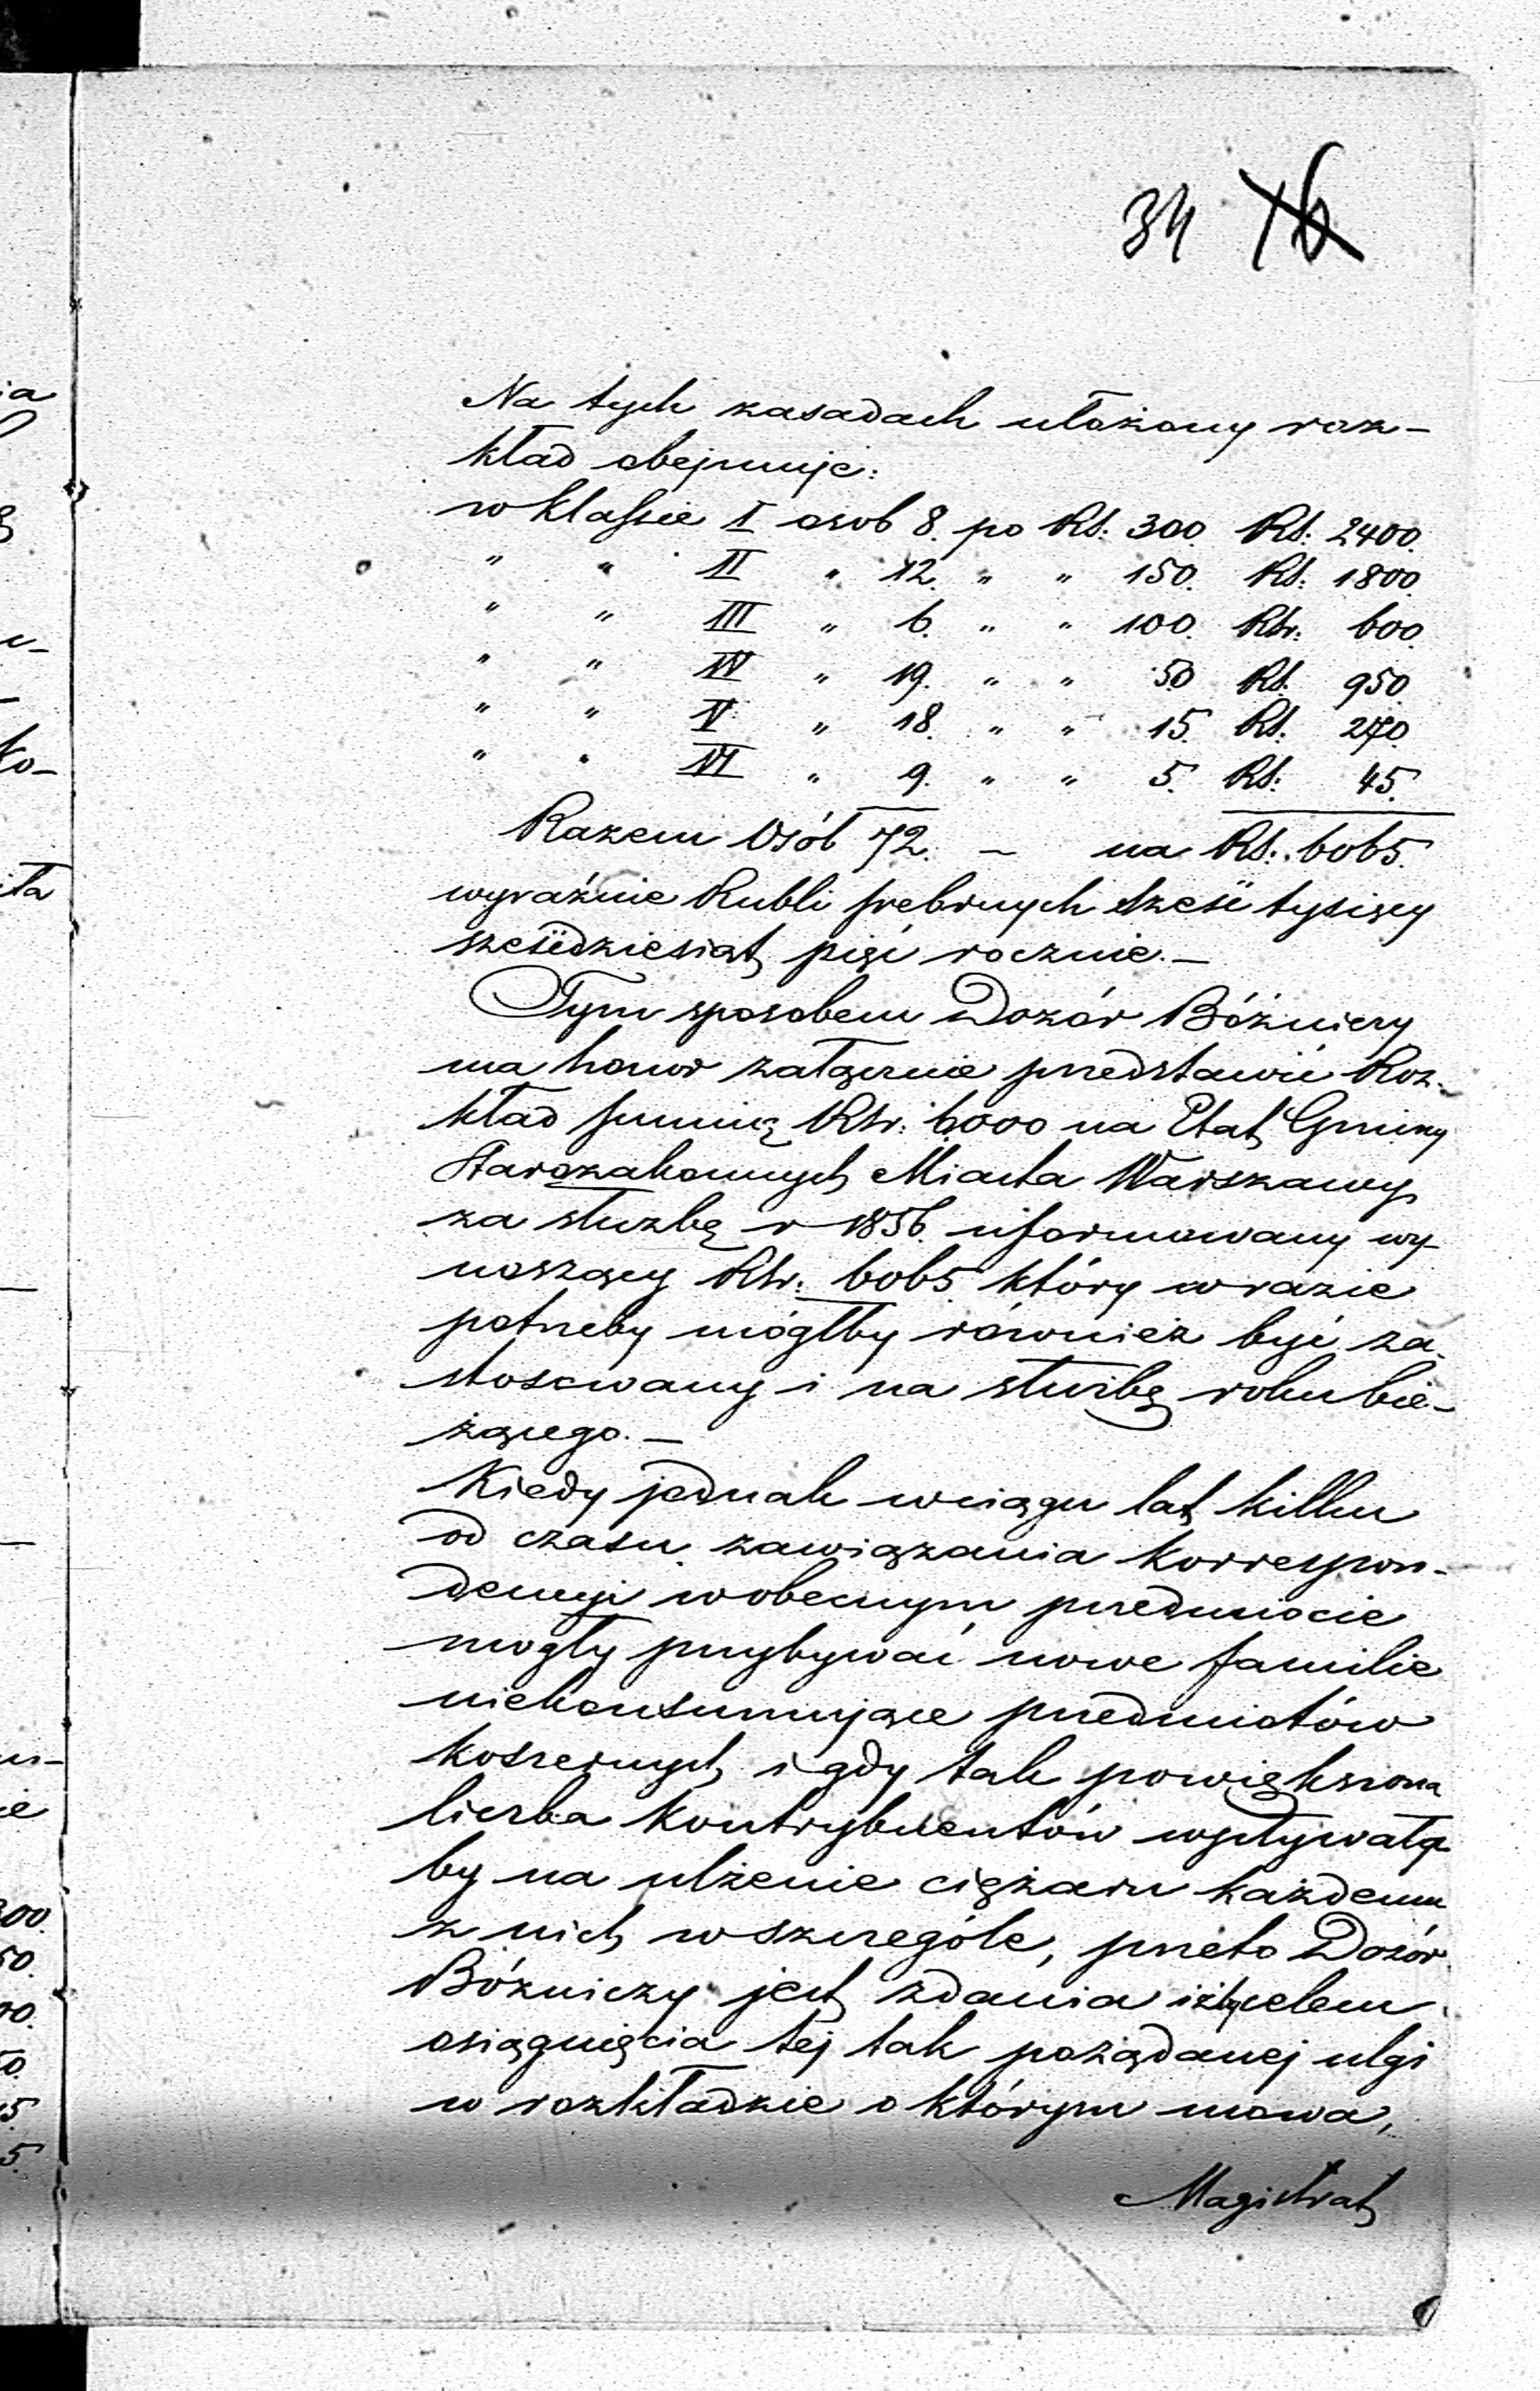 34 16
Na tych zasadach ułożony roz-
kład obejmuje:
w klassie I osob 8. po Rs: 300. Rs: 2400.
" " II " 12. " " 150. Rs: 1800.
" " III " 6. " " 100. Rsr: 600.
" " IV " 19. " " 50 Rs. 950.
" " V " 18. " " 15. Rs. 270.
" " VI " 9. " " 5. Rs: 45.
Razem Osób 72. — na Rs: 6065.
wyraźnie Rubli srebrnych sześć tysięcy
sześćdziesiąt pięć rocznie.—
Tym sposobem Dozór Bóżniczy
ma honor załącznie przedstawić Roz-
kład summy Rsr: 6000 na Etat Gminy
Starozakonnych Miasta Warszawy
za służbę r 1856. uformowany wy-
noszący Rsr: 6065 który w razie
potrzeby mógłby również być za-
stosowany i na służbę roku bie-
żącego.—
Kiedy jednak w ciągu lat kilku
od czasu zawiązania korrespon-
dencyi w obecnym przedmiocie
mogły przybywać nowe familie
niekonsumujące przedmiotów
koszernych, i gdy tak powiększona
liczba kontrybuentów wpływała
by na ulżenie ciężaru każdemu
z nich w szczególe, przeto Dozór
Bóżniczy jest zdania iżby celem
osiągnięcia tej tak pożądanej ulgi
w rozkładzie o którym mowa,
Magistrat